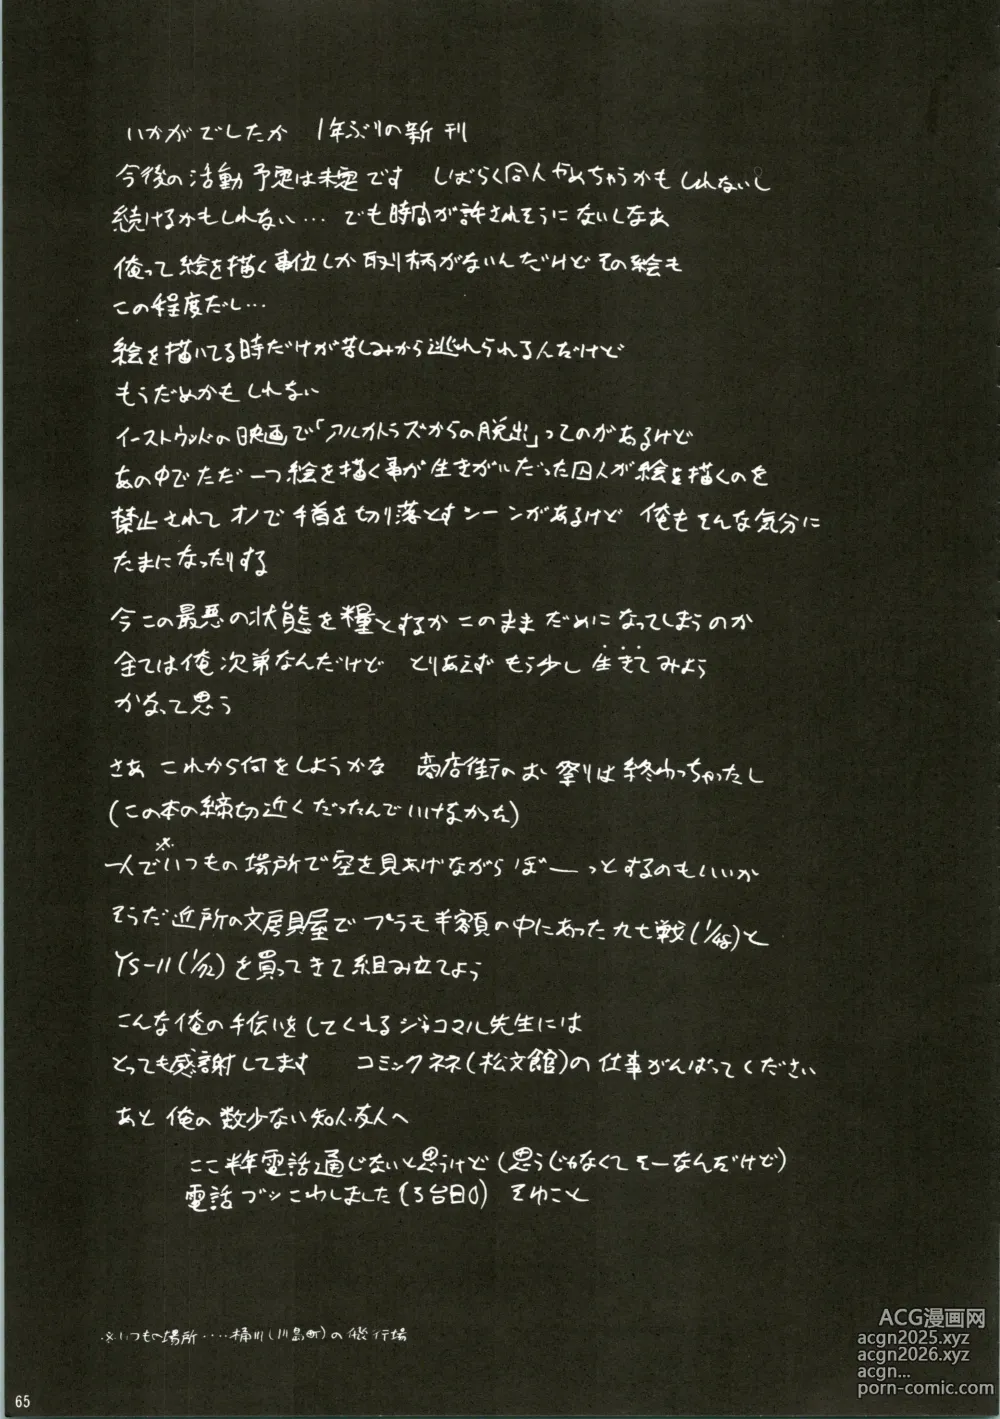 いかがでしたか 1年ぶりの新刊
今後の活動予定は未定です しばらく同人やめちゃうかもしれないし
続けるかもしれない… でも時間が許されそうにないしなあ
俺って絵を描く事位しか取り柄がないんだけどその絵も
この程度だし…
絵を描いてる時だけが苦しみから逃れられる人だけど
もうだめかもしれない
イーストウッドの映画で「アルカトラズからの脱出」ってのがあるけど
あの中でただ一つ絵を描く事が生きがいだった囚人が絵を描くのを
禁止されてオノで手首を切り落とすシーンがあるけど 俺もそんな気分に
たまになったりする
今この最悪の状態を糧とするかこのままだめになってしまうのか
全ては俺次第なんだけど とりあえずもう少し生きてみよう
かなって思う
さあ これから何をしようかな 商店街のお祭りは終わっちゃったし
(この本の締切近くだったんでいけなかった)
一人で※いつもの場所で空を見あげながらぼーっとするのもいいか
そうだ近所の文房具屋でプラモ半額の中にあった九七戦(1/48)と
YS-11(1/72)を買ってきて組み立てよう
こんな俺の手伝いをしてくれるジャコマル先生には
とっても感謝してます コミックネネ(松文館)の仕事がんばってください
あと俺の数少ない知人・友人へ
ここ半年電話通じないと思うけど(思うじゃなくてそーなんだけど)
電話ブッこわしました(3台目)
※いつもの場所‥‥桶川(川島町)の飛行場
65
ACG漫画网
acgn2025.xyz
acgn2026.xyz
acgn...
porn-comic.com